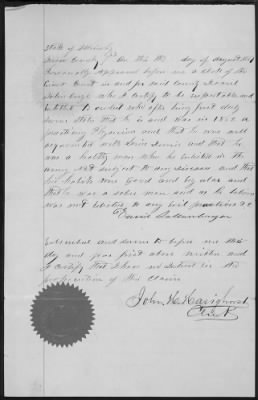 State of
County On this the day of August
Personally Appeared before me a Clerk of the
Court in and for said County
who I certify to be respectable and
entitled to credit who after being first duly
sworn states that he is and was in 1862 a
practicing Physician and that he was well
acquainted with and that he
was a healthy man when he enlisted in the
army not subject to any disease and that
his Habits were good and regular and
that he was a sober man and as he believes
was not addicted to any evil practices &c
David
Subscribed and sworn to before me this
day and year first above written and
I certify that I have no interest in the
prosecution of this claim
John H. Havighorst
Clerk